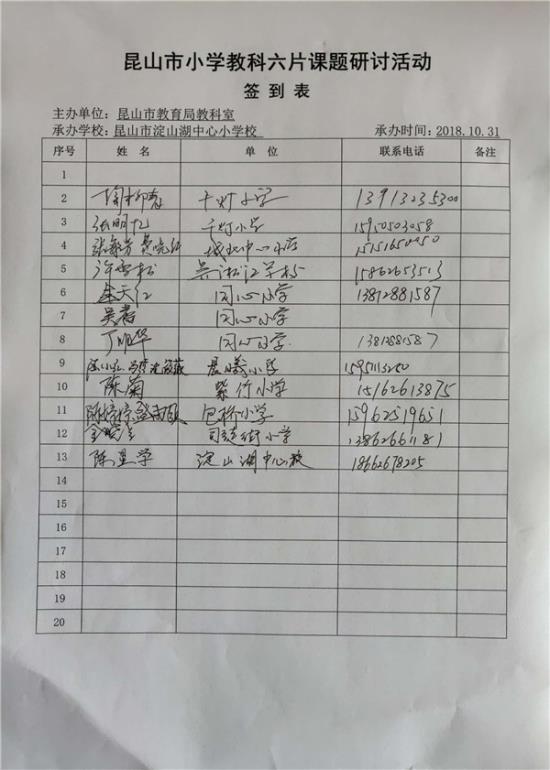 昆山市小学教科六片课题研讨活动
签 到 表
主办单位：昆山市教育局教科室
承办学校：昆山市淀山湖中心小学校 承办时间：2018.10.31
序号 姓 名 单 位 联系电话 备注
1
2 千灯小学 13913235300
3 千灯小学 15950503058
4 城北中心小学
5 许雪松 吴淞江学校 15862653513
6 金天红 同心小学 13812881587
7 吴君 同心小学
8 丁旭华 同心小学
9 晨曦小学 15951113250
10 陈菊 紫竹小学 15162613875
11 包桥小学 15962519651
12 司徒街小学 13862661181
13 陈星学 淀山湖中心校 18662678205
14
15
16
17
18
19
20